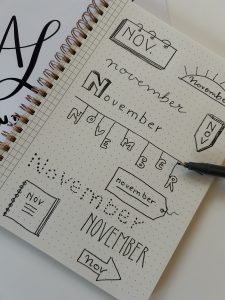 NOV.
november
november
November
NOV
NOVEMBER
November
november
NOV
NOVEMBER
nov